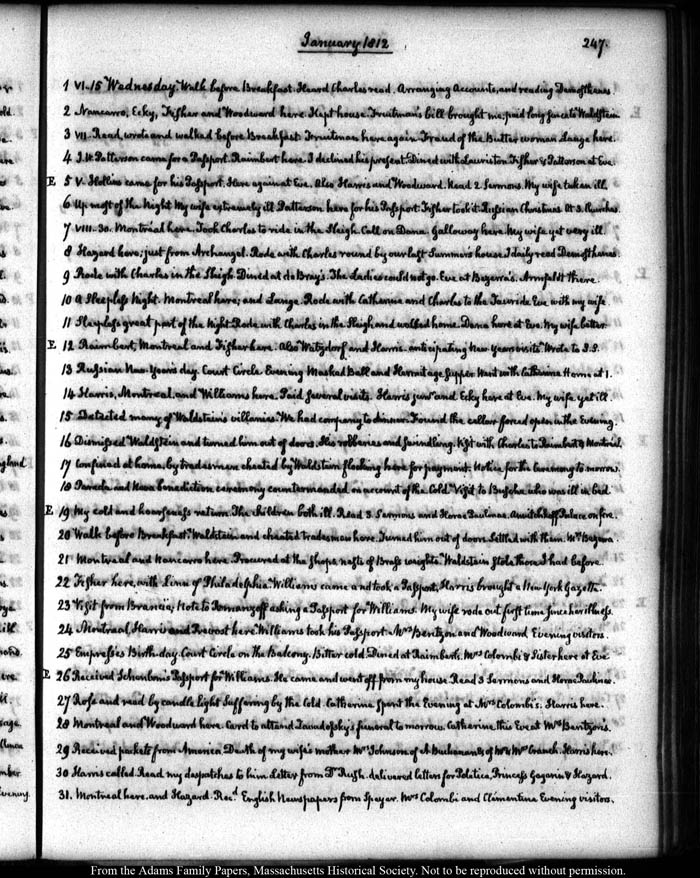 January 1812
247.
1 VI.15 Wednesday. Walk before Breakfast. Heard Charles read. Arranging Accounts, and reading Demosthenes.
2 Navarro, Ecky, Fisher and Woodward here. Kept house. Fruitman's bill brought me, paid long since to Waldstein
3 VII. Read, wrote and walked before Breakfast. Fruitman here again. Fraud of the Butter woman. Lange here.
4 J.W. Patterson came for a Passport. Raimbert here. I declined his present. Dined with Lauriston. Fisher & Patterson at Eve.
E 5 V. Hollins came for his Passport. Here again at Eve. Also Harris and Woodward. Read 2 Sermons. My wife taken ill.
6 Up most of the Night. My wife extremely ill. Patterson here for his Passport. Fisher took it. Russian Christmas. At 3. Churches.
7 VIII.30. Montréal here. Took Charles to ride in the Sleigh. Call on Dana. Galloway here. My wife yet very ill.
8 Hazard here; just from Archangel. Rode with Charles round by our last Summer's house. I daily read Demosthenes.
9 Rode with Charles in the Sleigh. Dined at de Bray's. The Ladies could not go. Eve at Bezerra's. Armfeldt there.
10 A Sleepless Night. Montreal here; and Lange. Rode with Catherine and Charles to the Taurida. Eve with my wife.
11 Sleepless great part of the Night. Rode with Charles in the Sleigh and walked home. Dana here at Eve. My wife better
E 12 Raimbert, Montreal and Fisher here. Also Weyzdorf and Harris. anticipating New Years visits. Wrote to J.S.
13 Russian New Year's day. Court Circle. Evening Masked Ball and Hermitage Supper. Went with Catherine. Home at 1.
14 Harris, Montreal, and Williams here. Paid several visits. Harris junr. and Ecky here at Eve. My wife yet ill.
15 Detected many of Waldstein's villanies. We had company to dinner. Found the cellar forced open in the Evening.
16 Dismissed Waldstein and turned him out of doors. His robberies and swindling. Visit with Charles to Raimbert & Montréal.
17 Confined at home, by tradesmen cheated by Waldstein flocking here for payment. Notice for the Ceremony to morrow.
18 Parade and Neva benediction ceremony countermanded on account of the Cold. Visit to Bussche who was ill in bed
E 19 My cold and hoarseness return. The children both ill. Read 3 Sermons and Horae Paulinae. Anitchkoff Palace on fire.
20 Walk before Breakfast. Waldstein and cheated tradesman here. Turned him out of doors. Settled with them. Mrs Bezerra.
21 Montreal and Navarro here. Procured at the shops nests of Brass weights. Waldstein stole those I had before.
22 Fisher here, with Lima of Philadelphia. Williams came and took a Passport, Harris brought a New York Gazette.
23 Visit from Brancia; Note to Romanzoff asking a Passport for Williams. My wife rode out first time since her illness.
24 Montreal, Harris and Prevost here. Williams took his Passport. Mrs Bentzon and Woodward Evening visitors.
25 Empresses Birth-day. Court Circle on the Balcony. Bitter cold. Dined at Raimbert's. Mrs Colombi & Sister here at Eve
E 26 Received Schönbom's Passport for Williams. He came and went off from my house. Read 3 Sermons and Horae Paulinae.
27 Rose and read by candle light. Suffering by the Cold. Catherine spent the Evening at Mrs Colombi's. Harris here.
28 Montreal and Woodward here. Card to attend Zawadofsky's funeral to morrow. Catherine this Eve at Mrs Bentzon's.
29 Received packets from America. Death of my wife's mother Mrs Johnson of A. Buchanan & of Mr & Mrs Cranch. Harris here.
30 Harris called. Read my despatches to him. Letter from Dr Rush. delivered letters for Politica, Princess Gagarin & Hazard.
31. Montreal here, and Hazard. Recd. English Newspapers from Speyer. Mrs Colombi and Clementina Evening visitors.
From the Adams Family Papers, Massachusetts Historical Society. Not to be reproduced without permission.